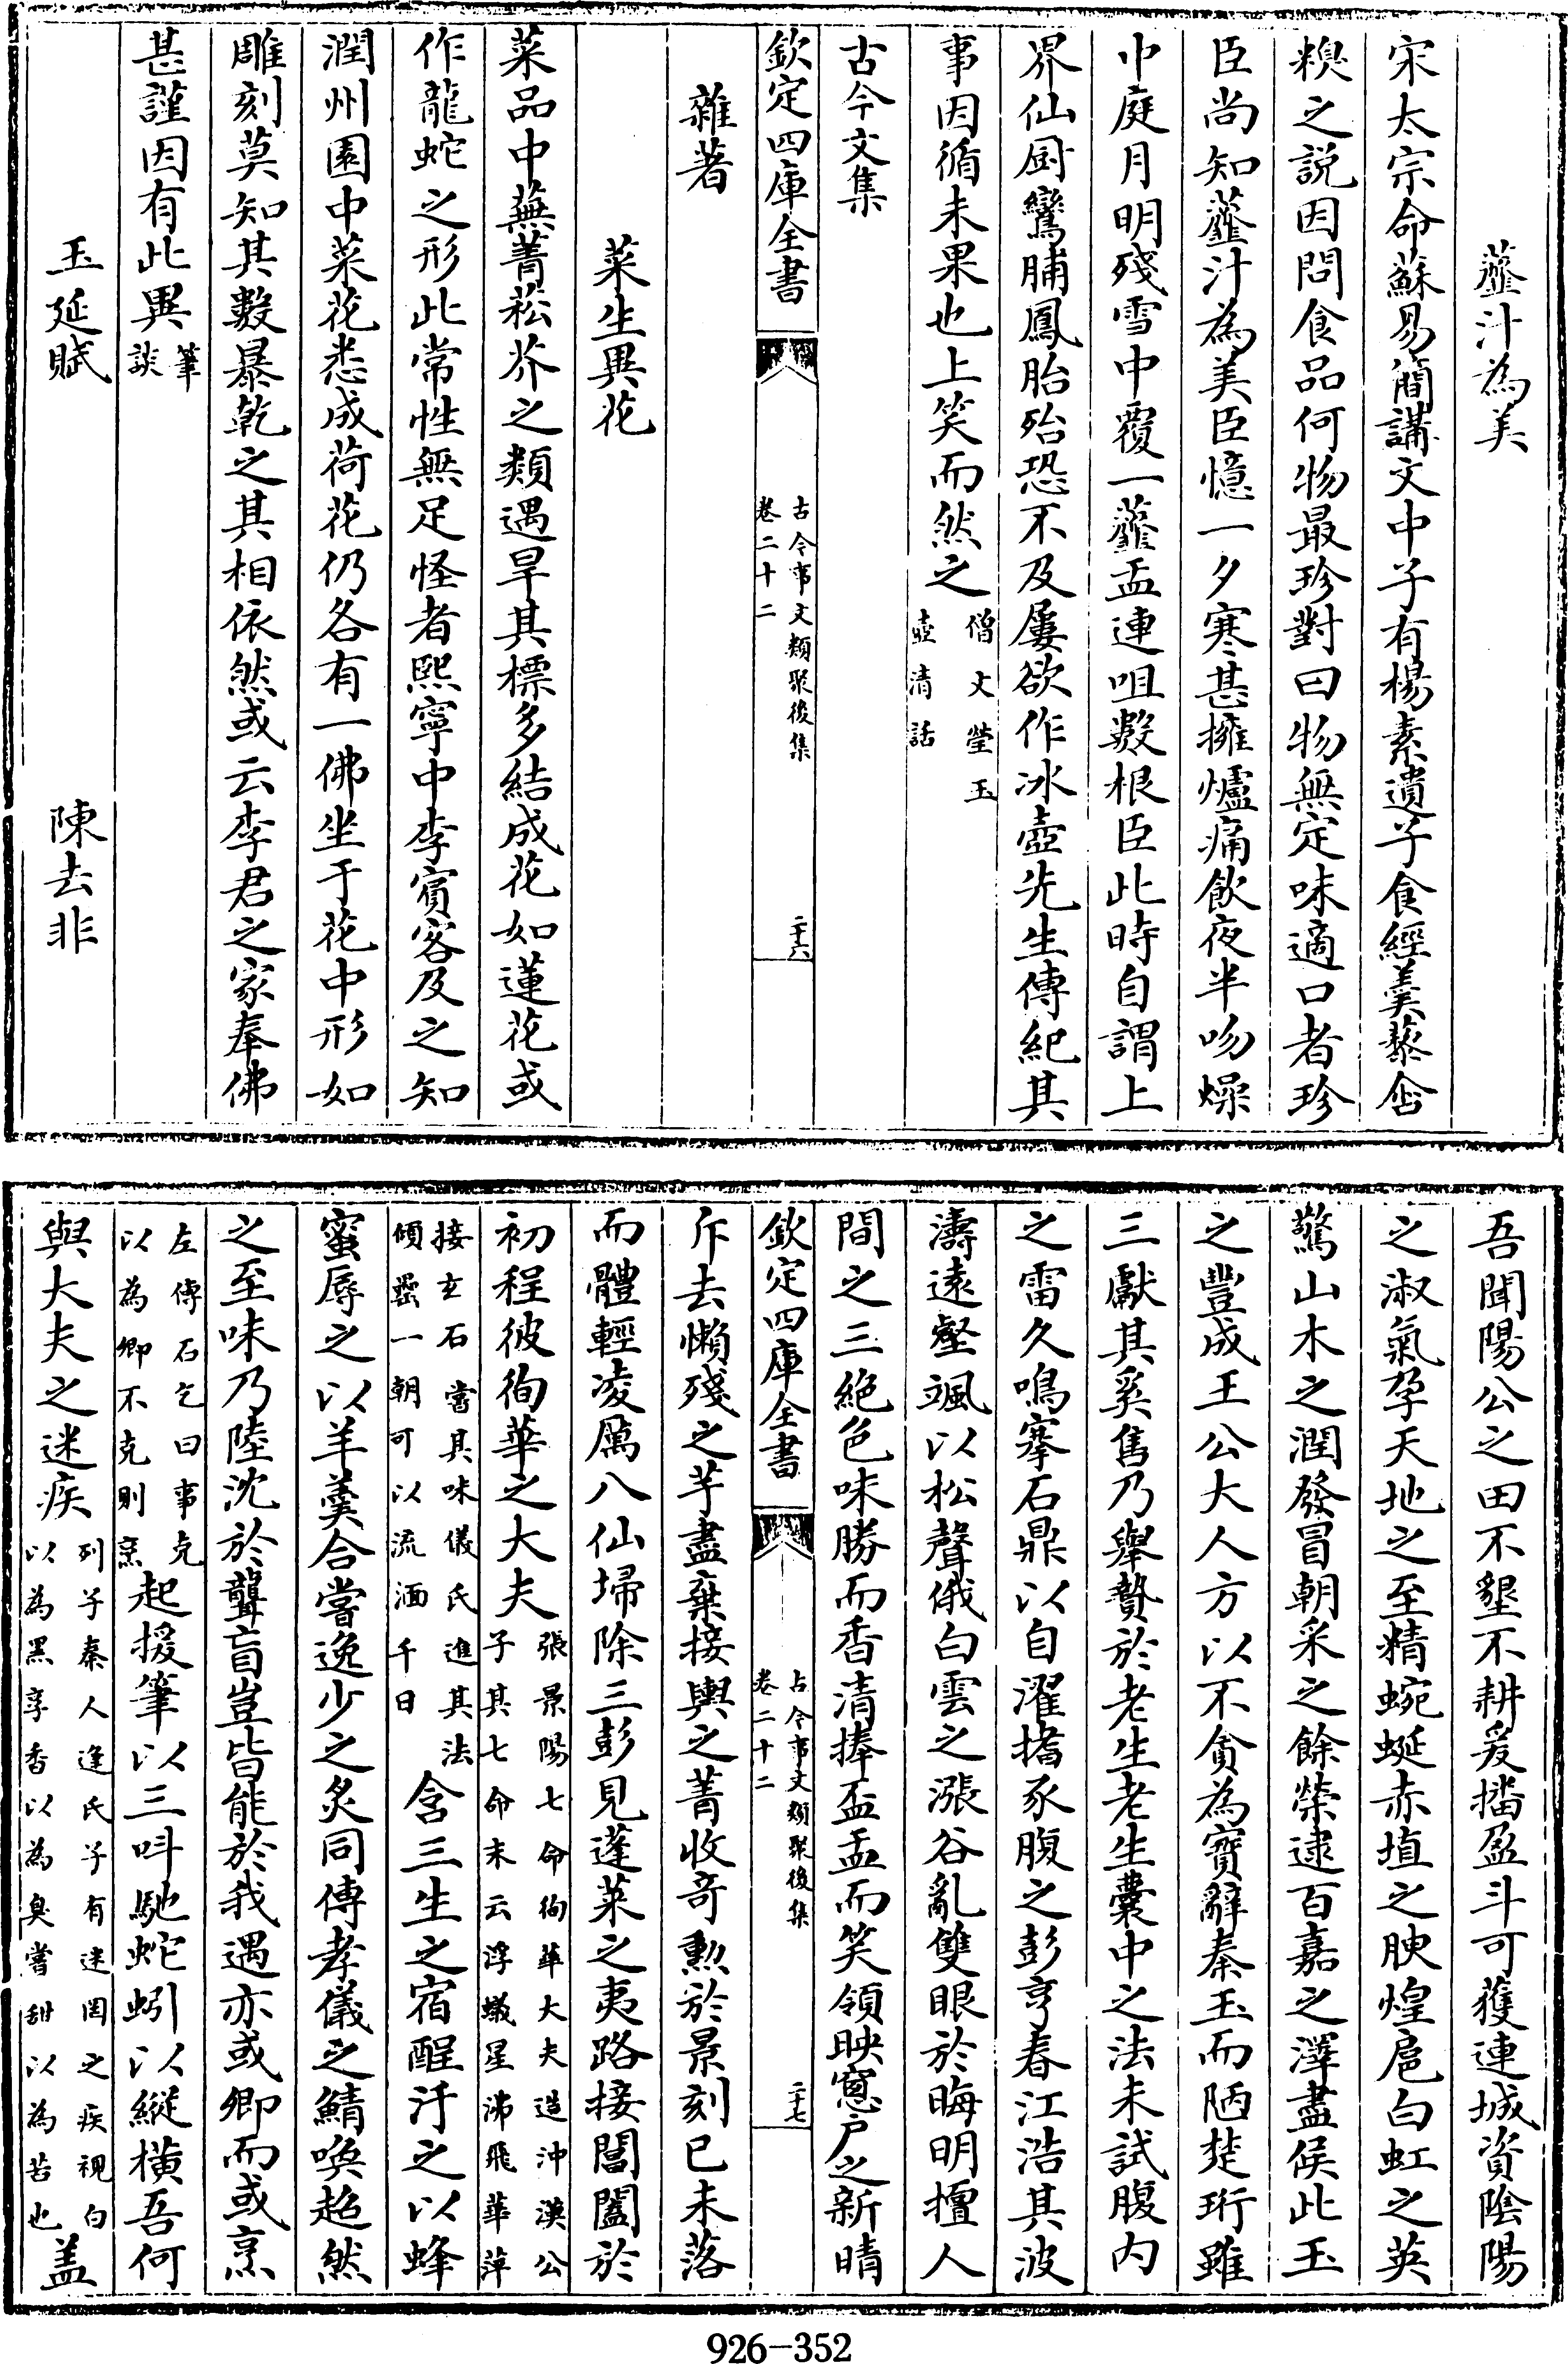 虀汁為美
宋太宗命蘇易簡講文中子有楊素遺子食經羹藜含
糗之説因問食品何物最珍對曰物無定味適口者珍
臣尚知虀汁為美臣憶一夕寒甚擁爐痛飲夜半吻燥
中庭月明殘雪中覆一虀盂連咀數根臣此時自謂上
界仙厨鸞脯鳳胎殆恐不及屢欲作冰壺先生傳紀其
事因循未果也上笑而然之僧文瑩玉壺清話
古今文集
欽定四庫全書 古今事文類聚後集 卷二十二 二十六
雜著
菜生異花
菜品中蕪菁菘芥之類遇旱其標多結成花如蓮花或
作龍蛇之形此常性無足怪者熙寧中李賓客及之知
潤州園中菜花悉成荷花仍各有一佛坐于花中形如
雕刻莫知其數暴乾之其相依然或云李君之家奉佛
甚謹因有此異筆談
玉延賦 陳去非
吾聞陽公之田不墾不耕爰播盈斗可獲連城資陰陽
之淑氣孕天地之至精蜿蜒赤埴之腴煌扈白虹之英
驚山木之潤發冒朝采之餘榮逮百嘉之澤盡候此玉
之豐成王公大人方以不貪為寶辭秦玉而陋楚珩雖
三獻其奚售乃舉贄於老生老生囊中之法未試腹内
之雷久鳴搴石鼎以自濯搘豕腹之彭亨春江浩其波
濤遠壑颯以松聲俄白雲之漲谷亂雙眼於晦明擅人
間之三絶色味勝而香清捧盃盂而笑領映窻户之新晴
欽定四庫全書 古今事文類聚後集 卷二十二 二十七
斥去懶殘之芋盡棄接輿之菁收奇勲於景刻已未落
而體輕凌厲八仙埽除三彭見蓬萊之夷路接閶闔於
初程彼徇華之大夫張景陽七命徇華大夫造沖漠公子其七命末云浮蟻星沸飛華萍
接玄石嘗其味儀氏進其法傾罍一朝可以流湎千日含三生之宿酲汙之以蜂
蜜辱之以羊羹合嘗逸少之炙同傳孝儀之鯖喚起然
之至味乃陸沈於聾盲豈皆能於我遇亦或卿而或烹
左傳石乞曰事克以為卿不克則烹起援筆以三呌馳蛇蚓以縱横吾何
與大夫之迷疾列子秦人逄氏子有迷罔之疾視白以為黑享香以為臭嘗甜以為苦也盖
926-352